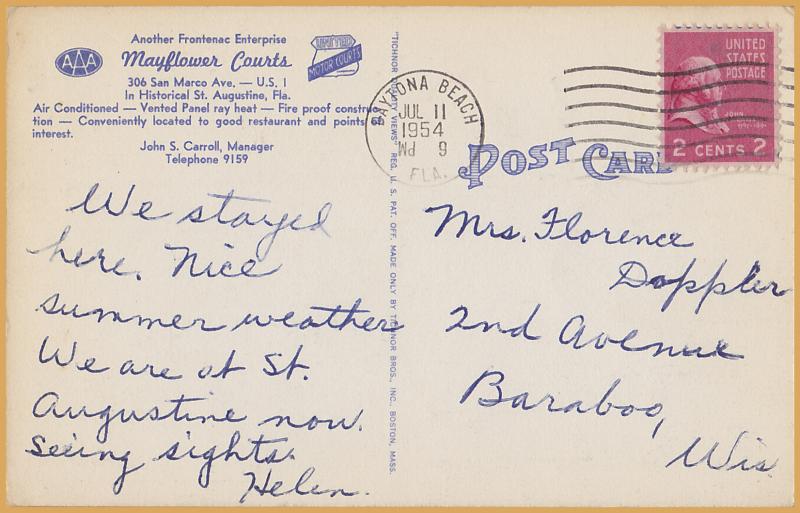 Another Frontenac Enterprise
AAA
Mayflower Courts
UNITED
MOTOR COURTS
306 San Marco Ave. — U.S. 1
In Historical St. Augustine, Fla.
Air Conditioned — Vented Panel ray heat — Fire proof construc-
tion — Conveniently located to good restaurant and points
interest.
John S. Carroll, Manager
Telephone 9159
We stayed
here. Nice
summer weather
We are at St.
Augustine now.
Seeing sights.
Helen.
"TICHNOR QUALITY VIEWS" REG. U. S. PAT. OFF. MADE ONLY BY TICHNOR BROS., INC., BOSTON, MASS.
DAYTONA BEACH
JUL 11
1954
9
FLA.
POST CARD
UNITED
STATES
POSTAGE
JOHN
2 CENTS 2
Mrs. Florence
Doppler
2nd Avenue
Baraboo,
Wis.